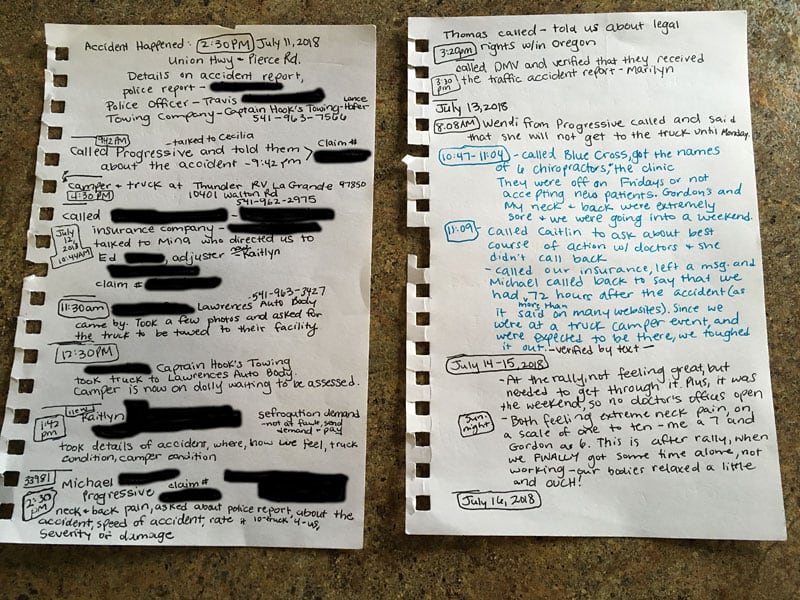 Accident Happened: 2:30PM July 11, 2018
Union Hwy - Pierce Rd.
Details on accident report,
police report -
Police Officer - Travis
Towing Company - Captain Hook's Towing - Lance Hofer
541-963-7566
9:42PM - talked to Cecilia
Called Progressive and told them
about the accident - 9:42 pm
Claim #
Camper + truck at Thunder RV La Grande 97850
4:30PM 10401 Walton Rd
541-962-2975
Called
July 12, 2018 10:44AM
insurance company -
talked to Mina who directed us to
Ed, adjuster Kaitlyn
claim #
541-963-3427
11:30am Lawrences Auto Body
came by. Took a few photos and asked for
the truck to be towed to their facility
12:30PM
Captain Hook's Towing
took truck to Lawrences Auto Body.
Camper is now on dolly waiting to be assessed.
1:42 pm
new Kaitlyn
sefrogation demand
- not at fault, send
demand + pay
took details of accident, where, how we feel, truck
condition, camper condition
33981
Michael claim #
2:30 pm Progressive
neck + back pain, asked about police report, about the
accident, speed of accident, rate # 10-truck 4-us,
severity of damage
Thomas called - told us about legal
3:20pm rights w/in Oregon
called DMV and verified that they received
3:30 pm the traffic accident report - Marilyn
July 13, 2018
8:08AM Wendi from Progressive called and said
that she will not get to the truck until Monday.
10:47-11:04 - called Blue Cross, got the names
of 6 chiropractors, the clinic
They were off on Fridays or not
accepting new patients. Gordon's and
My neck + back were extremely
sore + we were going into a weekend.
11:09 - Called Caitlin to ask about best
course of action w/ doctors + she
didn't call back
- called our insurance, left a msg. and
Michael called back to say that we
had more than 72 hours after the accident (as
it said on many websites). Since we
were at a truck camper event, and
were expected to be there, we toughed
it out. - verified by text -
July 14-15, 2018
- At the rally, not feeling great, but
needed to get through it. Plus, it was
the weekend, so no doctor's offices open
Sun. night - Both feeling extreme neck pain, on
a scale of one to ten - me a 7 and
Gordon a 6. This is after rally, when
we FINALLY got some time alone, not
working - our bodies relaxed a little
and OUCH!
July 16, 2018